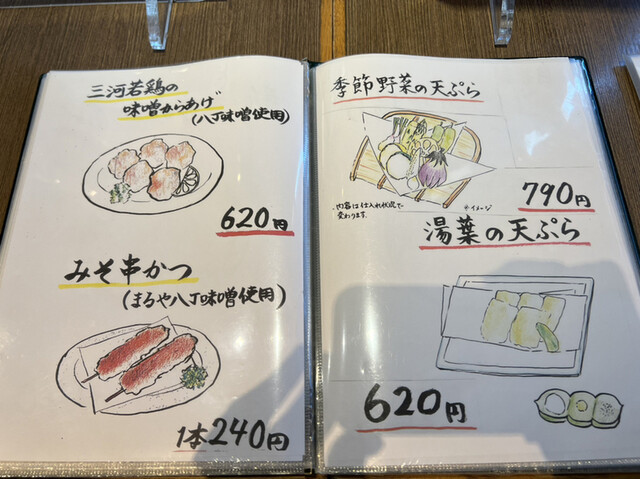 三河若鶏の
味噌からあげ
(八丁味噌使用)
620円
みそ串かつ
(まるや八丁味噌使用)
1本240円
季節野菜の天ぷら
・内容は仕入れ状況で
変わります。
※イメージ
790円
湯葉の天ぷら
620円